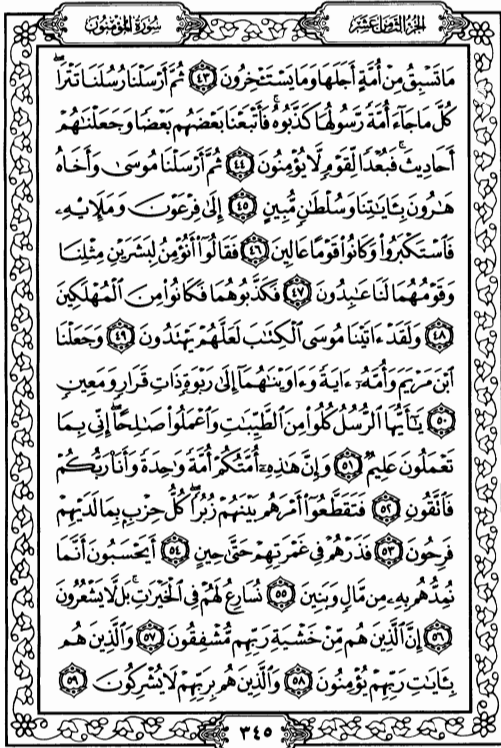 سُورَةُ المُؤْمِنُونَ
الجُزْءُ الثَّامِنَ عَشَرَ
مَا تَسْبِقُ مِنْ أُمَّةٍ أَجَلَهَا وَمَا يَسْتَـْٔخِرُونَ ٤٣ ثُمَّ أَرْسَلْنَا رُسُلَنَا تَتْرَاۖ
كُلَّ مَا جَآءَ أُمَّةً رَّسُولُهَا كَذَّبُوهُۚ فَأَتْبَعْنَا بَعْضَهُم بَعْضًا وَجَعَلْنَـٰهُمْ
أَحَادِيثَۚ فَبُعْدًا لِّقَوْمٍ لَّا يُؤْمِنُونَ ٤٤ ثُمَّ أَرْسَلْنَا مُوسَىٰ وَأَخَاهُ
هَـٰرُونَ بِـَٔايَـٰتِنَا وَسُلْطَـٰنٍ مُّبِينٍ ٤٥ إِلَىٰ فِرْعَوْنَ وَمَلَإِي۟هِۦ
فَٱسْتَكْبَرُوا۟ وَكَانُوا۟ قَوْمًا عَالِينَ ٤٦ فَقَالُوٓا۟ أَنُؤْمِنُ لِبَشَرَيْنِ مِثْلِنَا
وَقَوْمُهُمَا لَنَا عَـٰبِدُونَ ٤٧ فَكَذَّبُوهُمَا فَكَانُوا۟ مِنَ ٱلْمُهْلَكِينَ
٤٨ وَلَقَدْ ءَاتَيْنَا مُوسَى ٱلْكِتَـٰبَ لَعَلَّهُمْ يَهْتَدُونَ ٤٩ وَجَعَلْنَا
ٱبْنَ مَرْيَمَ وَأُمَّهُۥٓ ءَايَةً وَءَاوَيْنَـٰهُمَآ إِلَىٰ رَبْوَةٍ ذَاتِ قَرَارٍ وَمَعِينٍ
٥٠ يَـٰٓأَيُّهَا ٱلرُّسُلُ كُلُوا۟ مِنَ ٱلطَّيِّبَـٰتِ وَٱعْمَلُوا۟ صَـٰلِحًاۖ إِنِّى بِمَا
تَعْمَلُونَ عَلِيمٌ ٥١ وَإِنَّ هَـٰذِهِۦٓ أُمَّتُكُمْ أُمَّةً وَٰحِدَةً وَأَنَا۠ رَبُّكُمْ
فَٱتَّقُونِ ٥٢ فَتَقَطَّعُوٓا۟ أَمْرَهُم بَيْنَهُمْ زُبُرًاۖ كُلُّ حِزْبٍۭ بِمَا لَدَيْهِمْ
فَرِحُونَ ٥٣ فَذَرْهُمْ فِى غَمْرَتِهِمْ حَتَّىٰ حِينٍ ٥٤ أَيَحْسَبُونَ أَنَّمَا
نُمِدُّهُم بِهِۦ مِن مَّالٍ وَبَنِينَ ٥٥ نُسَارِعُ لَهُمْ فِى ٱلْخَيْرَٰتِۚ بَل لَّا يَشْعُرُونَ
٥٦ إِنَّ ٱلَّذِينَ هُم مِّنْ خَشْيَةِ رَبِّهِم مُّشْفِقُونَ ٥٧ وَٱلَّذِينَ هُم
بِـَٔايَـٰتِ رَبِّهِمْ يُؤْمِنُونَ ٥٨ وَٱلَّذِينَ هُم بِرَبِّهِمْ لَا يُشْرِكُونَ ٥٩
٣٤٥